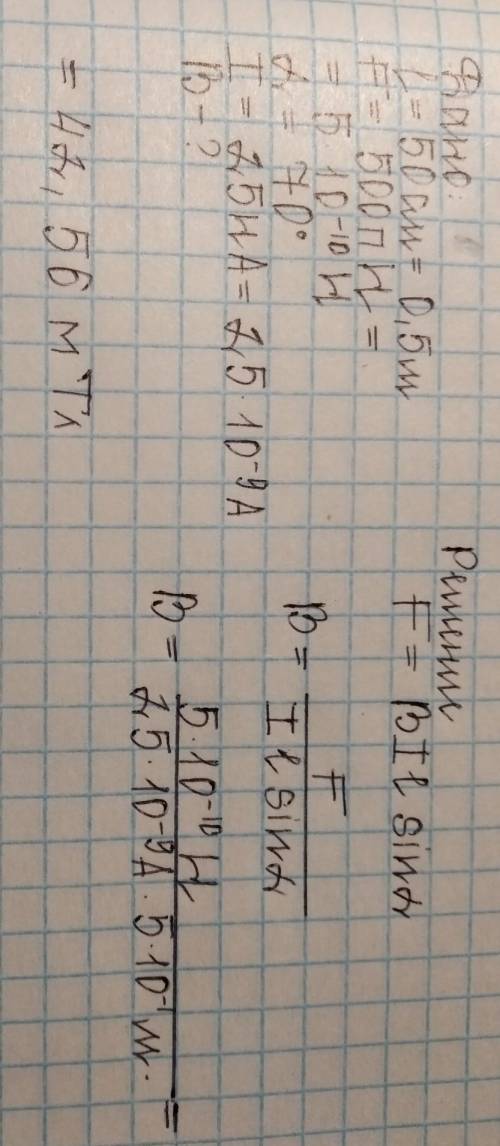 Дано:
L = 50 см = 0,5 м
F = 500 пН =
= 5 10⁻¹⁰ Н
α = 70°
I = 2,5 нА = 2,5 · 10⁻⁹ А
B - ?
Решение
F = BIℓ sinα
B = F / Iℓ sinα
B = 5 · 10⁻¹⁰ Н / 2,5 · 10⁻⁹ А · 5 · 10⁻¹ м. =
= 42,56 мТл